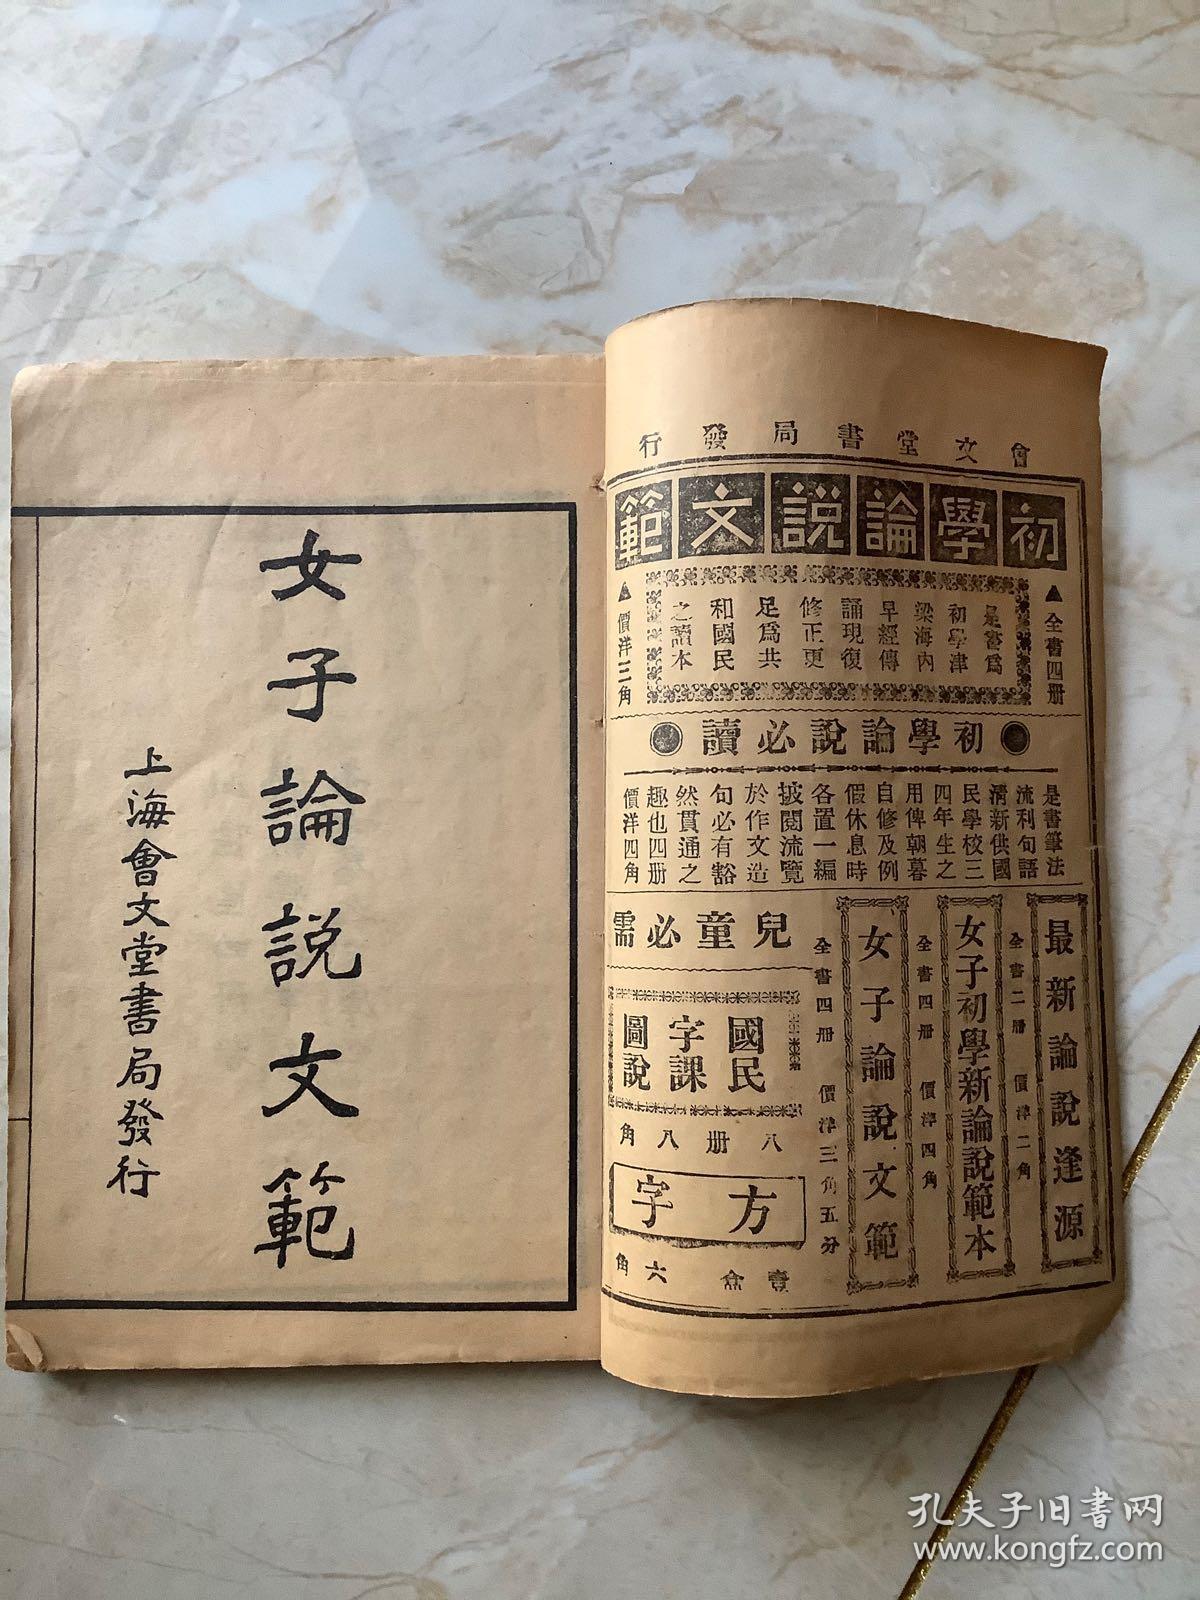 會文堂書局發行
初學論説文範
▲全書四册
是書爲
初學津
梁海内
早經傳
誦現復
修正更
足爲共
和國民
之讀本
▲價洋三角
初學論說必讀
是書筆法
流利句語
清新供國
民學校三
四年生之
用俾朝暮
自修及例
假休息時
各置一編
披閱流覽
於作文造
句必有豁
然貫通之
趣也四册
價洋四角
最新論說逢源
全書二册 價洋二角
女子初學新論説範本
全書四册 價洋四角
女子論説文範
全書四册 價洋三角五分
兒童必需
國民
字課
圖說
八册八角
方字
壹盒六角
女子論説文範
上海會文堂書局發行
孔夫子旧书网
www.kongfz.com